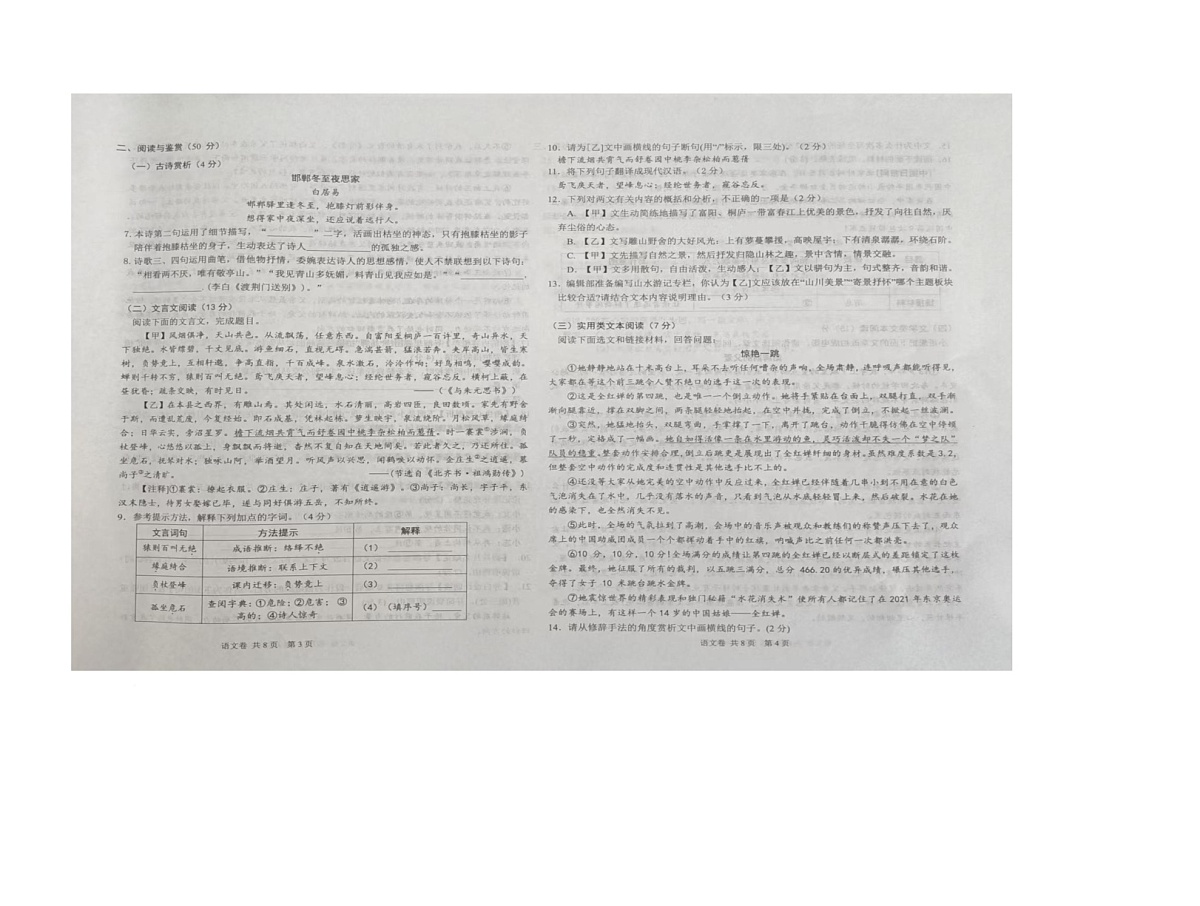 二、阅读与鉴赏（50 分）
（一）古诗赏析（4分）
邯郸冬至夜思家
白居易
邯郸驿里逢冬至，抱膝灯前影伴身。
想得家中夜深坐，还应说着远行人。
7. 本诗第二句运用了细节描写，“________”一字，活画出枯坐的神态，只有抱膝枯坐的影子
陪伴着抱膝枯坐的身子，生动表达了诗人__________的孤独之感。
8. 诗歌三、四句运用曲笔，借他物抒情，委婉表达诗人的思想感情，使人不禁联想到以下诗句：
“相看两不厌，唯有敬亭山。”“我见青山多妩媚，料青山见我应如是。”“__________，
______________。（李白《渡荆门送别》）。”
（二）文言文阅读（13分）
阅读下面的文言文，完成题目。
【甲】风烟俱净，天山共色。从流飘荡，任意东西。自富阳至桐庐一百许里，奇山异水，天
下独绝。水皆缥碧，千丈见底。游鱼细石，直视无碍。急湍甚箭，猛浪若奔。夹岸高山，皆生寒
树，负势竞上，互相轩邈，争高直指，千百成峰。泉水激石，泠泠作响；好鸟相鸣，嘤嘤成韵。
蝉则千转不穷，猿则百叫无绝。鸢飞戾天者，望峰息心；经纶世务者，窥谷忘反。横柯上蔽，在
昼犹昏；疏条交映，有时见日。 ——（《与朱元思书》）
【乙】在本县之西界，有雕山焉。其处闲远，水石清丽，高岩四匝，良田数顷。家先有野舍
于斯，而遭乱荒废，今复经始。即石成基，凭林起栋。萝生映宇，泉流绕阶。月松风草，缘庭绮
合；日华云实，旁沼星罗。檐下流烟共霄气而舒卷园中桃李杂松柏而葱蒨。时一褰裳①涉涧，负
杖登峰，心悠悠以孤上，身飘飘而将逝，杳然不复自知在天地间矣。若此者久之，乃还所住。孤
坐危石，抚琴对水；独咏山阿，举酒望月。听风声以兴思，闻鹤唳以动怀。企庄生②之逍遥，慕
尚子③之清旷。 ——（节选自《北齐书·祖鸿勋传》）
【注释】①褰裳：撩起衣服。②庄生：庄子，著有《逍遥游》。③尚子：尚长，字子平，东
汉末隐士，待男女娶嫁已毕，遂与同好俱游五岳，不知所终。
9. 参考提示方法，解释下列加点的字词。（4 分）
文言词句 方法提示 解释
猿则百叫无绝 成语推断：络绎不绝 （1）____________
缘庭绮合 语境推断：联系上下文 （2）____________
负杖登峰 课内迁移：负势竞上 （3）____________
孤坐危石 查阅字典：①危险；②危害； ③高的；④诗人惊奇 （4）（填序号）________
语文卷 共 8 页 第 3 页
10. 请为[乙]文中画横线的句子断句(用“/”标示，限三处)。（2 分）
檐下流烟共霄气而舒卷园中桃李杂松柏而葱蒨
11. 将下列句子翻译成现代汉语。（2 分）
鸢飞戾天者，望峰息心；经纶世务者，窥谷忘反。
12. 下列对两文有关内容的概括和分析，不正确的一项是(2 分)
A. 【甲】文生动简练地描写了富阳、桐庐一带富春江上优美的景色，抒发了向往自然，厌
弃尘俗的心态。
B. 【乙】文写雕山野舍的大好风光：上有萝蔓攀援，高映屋宇；下有清泉潺潺，环绕石阶。
C. 【甲】文先描写自然之景，然后抒发归隐山林之趣，景中含情，情景交融。
D. 【甲】文多用散句，自由活泼，生动感人；【乙】文以骈句为主，句式整齐，音韵和谐。
13. 编辑部准备编写山水游记专栏，你认为【乙】文应该放在“山川美景”“寄景抒怀”哪个主题板块
比较合适?请结合文本内容说明理由。（3 分）
（三）实用类文本阅读（7 分）
阅读下面选文和链接材料，回答问题：
惊艳一跳
①她静静地站在十米高台上，耳朵不去听任何嘈杂的声响，全场肃静，连呼吸声都能听得见，
大家都在等这个前三跳令人赞不绝口的选手这一次的表现。
②这是全红婵的第四跳，也是唯一一个倒立动作。她将手紧贴在台面上，双腿打直，双手渐
渐向腿靠近，撑在双脚之间，两条腿轻轻地抬起，在空中并拢，完成了倒立，不掀起一丝波澜。
③突然，她猛地抬头，双腿弯曲，手掌撑了一下，离开了跳台，动作干脆得仿佛在空中停顿
了一秒，定格成了一幅画。她自如得活像一条在水里游动的鱼，灵巧活泼却不失一个“梦之队”
队员的稳重。整套动作安排合理，倒立后跳更是展现出了全红婵纤细的身材。虽然难度系数是3.2，
但整套空中动作的完成度和连贯性是其他选手比不上的。
④还没等大家从她完美的空中动作中反应过来，全红婵已经伴随着几串小到不用在意的白色
气泡消失在了水中，几乎没有落水的声音，只看到气泡从水底轻轻冒上来，然后破裂。水花在她
的感染下，也全然消失不见。
⑤此时，全场的气氛拉到了高潮，会场中的音乐声被观众和教练们的称赞声压下去了，观众
席上的中国助威团成员一个个都挥动着手中的红旗，呐喊声比之前任何一次都洪亮。
⑥10 分，10 分，10 分!全场满分的成绩让第四跳的全红婵已经以断层式的差距镇定了这枚
金牌。最终，她征服了所有的裁判，以五跳三满分，总分 466.20 的优异成绩，碾压其他选手，
夺得了女子 10 米跳台跳水金牌。
⑦她震惊世界的精彩表现和独门秘籍“水花消失术”使所有人都记住了在 2021 年东京奥运
会的赛场上，有这样一个 14 岁的中国姑娘——全红婵。
14. 请从修辞手法的角度赏析文中画横线的句子。(2 分)
语文卷 共 8 页 第 4 页